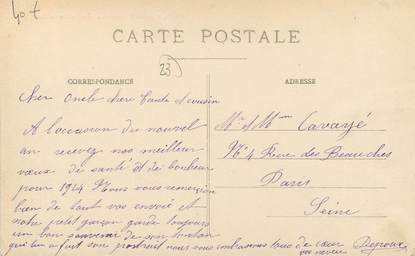 40 f
CARTE POSTALE
23
CORRESPONDANCE
ADRESSE
Cher Oncle chère Tante et cousin
A l'occasion du nouvel
an recevez nos meilleur
vœux de santé et de bonheur
pour 1924 Nous vous remercion
bien de tout vos envoie et
notre petit garçon garde toujours
un bon souvenir de son tonton
qui lui a fait son portrait nous vous embrassons tous de cœur
vos neveu
Mr et Mme Cavayé
No 4 Rue des
Paris
Seine